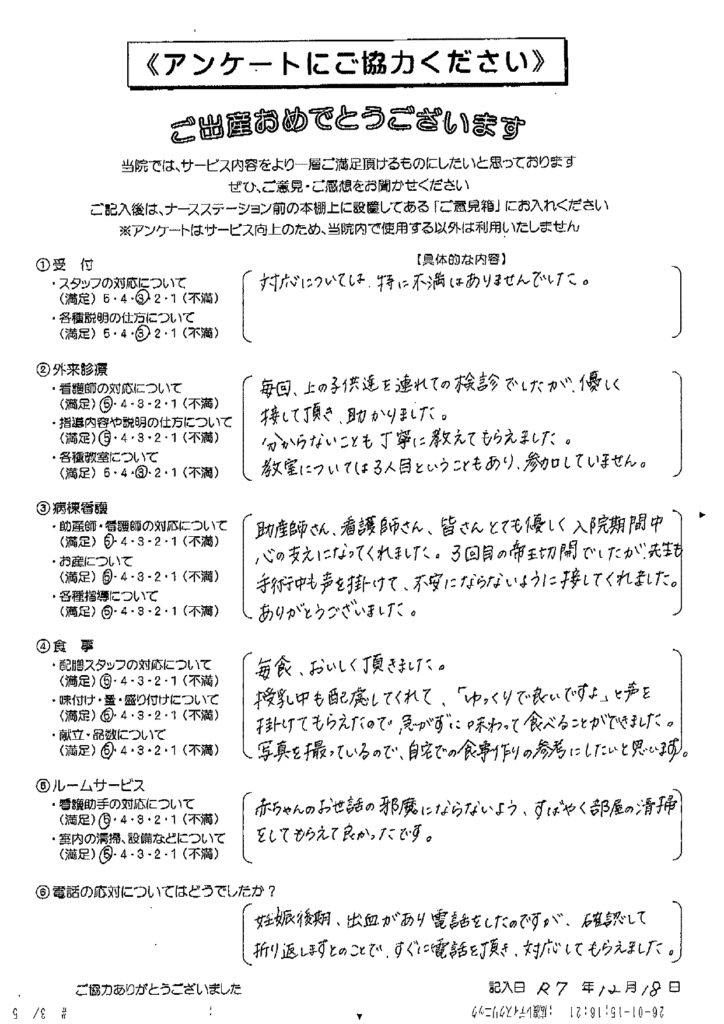 《アンケートにご協力ください》
ご出産おめでとうございます
当院では、サービス内容をより一層ご満足頂けるものにしたいと思っております
ぜひ、ご意見・ご感想をお聞かせください
ご記入後は、ナースステーション前の本棚上に設置してある「ご意見箱」にお入れください
※アンケートはサービス向上のため、当院内で使用する以外は利用いたしません
①受 付
【具体的な内容】
・スタッフの対応について
(満足) 5・4・③・2・1 (不満)
・各種説明の仕方について
(満足) 5・4・③・2・1 (不満)
対応については、特に不満はありませんでした。
②外来診療
・看護師の対応について
(満足) ⑤・4・3・2・1 (不満)
・指導内容や説明の仕方について
(満足) ⑤・4・3・2・1 (不満)
・各種教室について
(満足) 5・4・③・2・1 (不満)
毎回、上の子供達を連れての検診でしたが、優しく
接して頂き、助かりました。
分からないことも丁寧に教えてもらえました。
教室については3人目ということもあり、参加していません。
③病棟看護
・助産師・看護師の対応について
(満足) ⑤・4・3・2・1 (不満)
・お産について
(満足) ⑤・4・3・2・1 (不満)
・各種指導について
(満足) ⑤・4・3・2・1 (不満)
助産師さん、看護師さん、皆さんとても優しく入院期間中
心の支えになってくれました。3回目の帝王切開でしたが先生も
手術中も声を掛けて、不安にならないように接してくれました。
ありがとうございました。
④食 事
・配膳スタッフの対応について
(満足) ⑤・4・3・2・1 (不満)
・味付け・量・盛り付けについて
(満足) ⑤・4・3・2・1 (不満)
・献立・品数について
(満足) ⑤・4・3・2・1 (不満)
毎食、おいしく頂きました。
授乳中も配慮してくれて、「ゆっくりで良いですよ」と声を
掛けてもらえたので、急がずに味わって食べることができました。
写真を撮っているので、自宅での食事作りの参考にしたいと思います。
⑤ルームサービス
・看護助手の対応について
(満足) ⑤・4・3・2・1 (不満)
・室内の清掃、設備などについて
(満足) ⑤・4・3・2・1 (不満)
赤ちゃんのお世話の邪魔にならないよう、すばやく部屋の清掃
をしてもらえて良かったです。
⑥電話の応対についてはどうでしたか？
妊娠後期、出血があり電話をしたのですが、確認して
折り返しますとのことで、すぐに電話を頂き、対応してもらえました。
ご協力ありがとうございました
記入日 R7 年 12 月 18 日
26-01-15;16:21
# 3/ 5